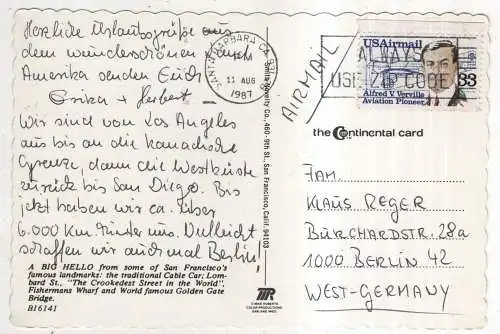 Herzliche Urlaubsgrüße aus
dem wunderschönen
Amerika senden Euch
Erika + Herbert
Wir sind von Los Angeles
aus bis an die kanadische
Grenze, dann die Westküste
zurück bis San Diego. Bis
jetzt haben wir ca. über
6.000 Km hinter uns. Vielleicht
schaffen wir auch mal Berlin,
A BIG HELLO from some of San Francisco's
famous landmarks: the traditional Cable Car; Lom-
bard St., "The Crookedest Street in the World",
Fishermans Wharf and World famous Golden Gate
Bridge.
B16141
SANTA BARBARA CA
PM
11 AUG
1987
AIRMAIL
ALWAYS
USE ZIP CODE
USAirmail
33
Alfred V. Verville
Aviation Pioneer
Smith Novelty Co., 460-9th St., San Francisco, Calif. 94103
the Continental card
TR
FAM.
KLAUS REGER
BURCHARDSTR. 28a
1000 BERLIN 42
WEST-GERMANY